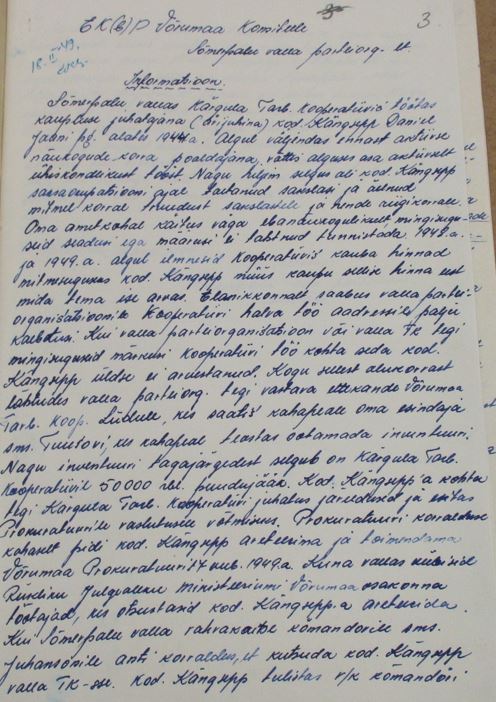 3
EK(b)P Võrumaa Komiteele
Sõmerpalu valla parteiorg.
18. II 49.
Informatsioon.
Sõmerpalu vallas Kärgula Tarb. Kooperatiivis töötas
kaupluse juhatajana (ärijuhina) kod. Kängsepp Daniel
Jaani pg. alates 1944 a. Algul väljendas ennast aktiivse
nõukogude korra pooldajana, võttis alguses osa aktiivselt
ühiskondlikust tööst. Nagu hiljem selgus oli kod. Kängsepp
saksaokupatsiooni ajal teeninud sakslasi ja öelnud
mitmel korral truudust sakslastele ja nende riigikorrale.
Oma ametkohal käitus väga ebanõukogulikult mingisugu-
seid seadusi ega määrusi ei tahtnud tunnistada 1948.a.
ja 1949.a. algul ilmnesid kooperatiivis kauba hinnad
mitmesugused kod. Kängsepp müüs kaupu sellise hinna eest
mida tema ise arvas. Elanikkonnalt saabus valla partei-
organisatsioonile Kooperatiivi halva töö aadressile palju
kaebtusi. Kui valla parteiorganisatsioon või valla TK tegi
mingisuguseid märkusi kooperatiivi töö kohta seda kod.
Kängsepp üldse ei arvestanud. Kogu sellest olukorrast
lähtudes valla parteiorg. tegi vastava ettekande Võrumaa
Tarb. Koop. Liidule, kes saatis kohapeale oma esindaja
sms. kes kohapeal teostas ootamata inventuuri.
Nagu inventuuri tagajärgedest selgub on Kärgula Tarb.
Kooperatiivil 50000 rbl. puudujääk. Kod. Kängsepp'a kohta
tegi Kärgula Tarb. Kooperatiivi juhatus järeldused ja esitas
Prokuratuurile vastutusele võtmiseks. Prokuratuuri korralduse
kohaselt pidi kod. Kängsepp areteerima ja toimendama
Võrumaa Prokuratuuri 17 veeb. 1949.a. Kuna vallas viibisid
Riikliku Julgeoleku Ministeeriumi Võrumaa osakonna
töötajad, kes otsustasid kod. Kängsepp-a areteerida.
Kui Sõmerpalu valla rahvakaitse komandörile sms.
Juhansonile anti korraldus, et kutsuda kod. Kängsepp
valla TK-sse. Kod. Kängsepp tulistas r/k komandöri